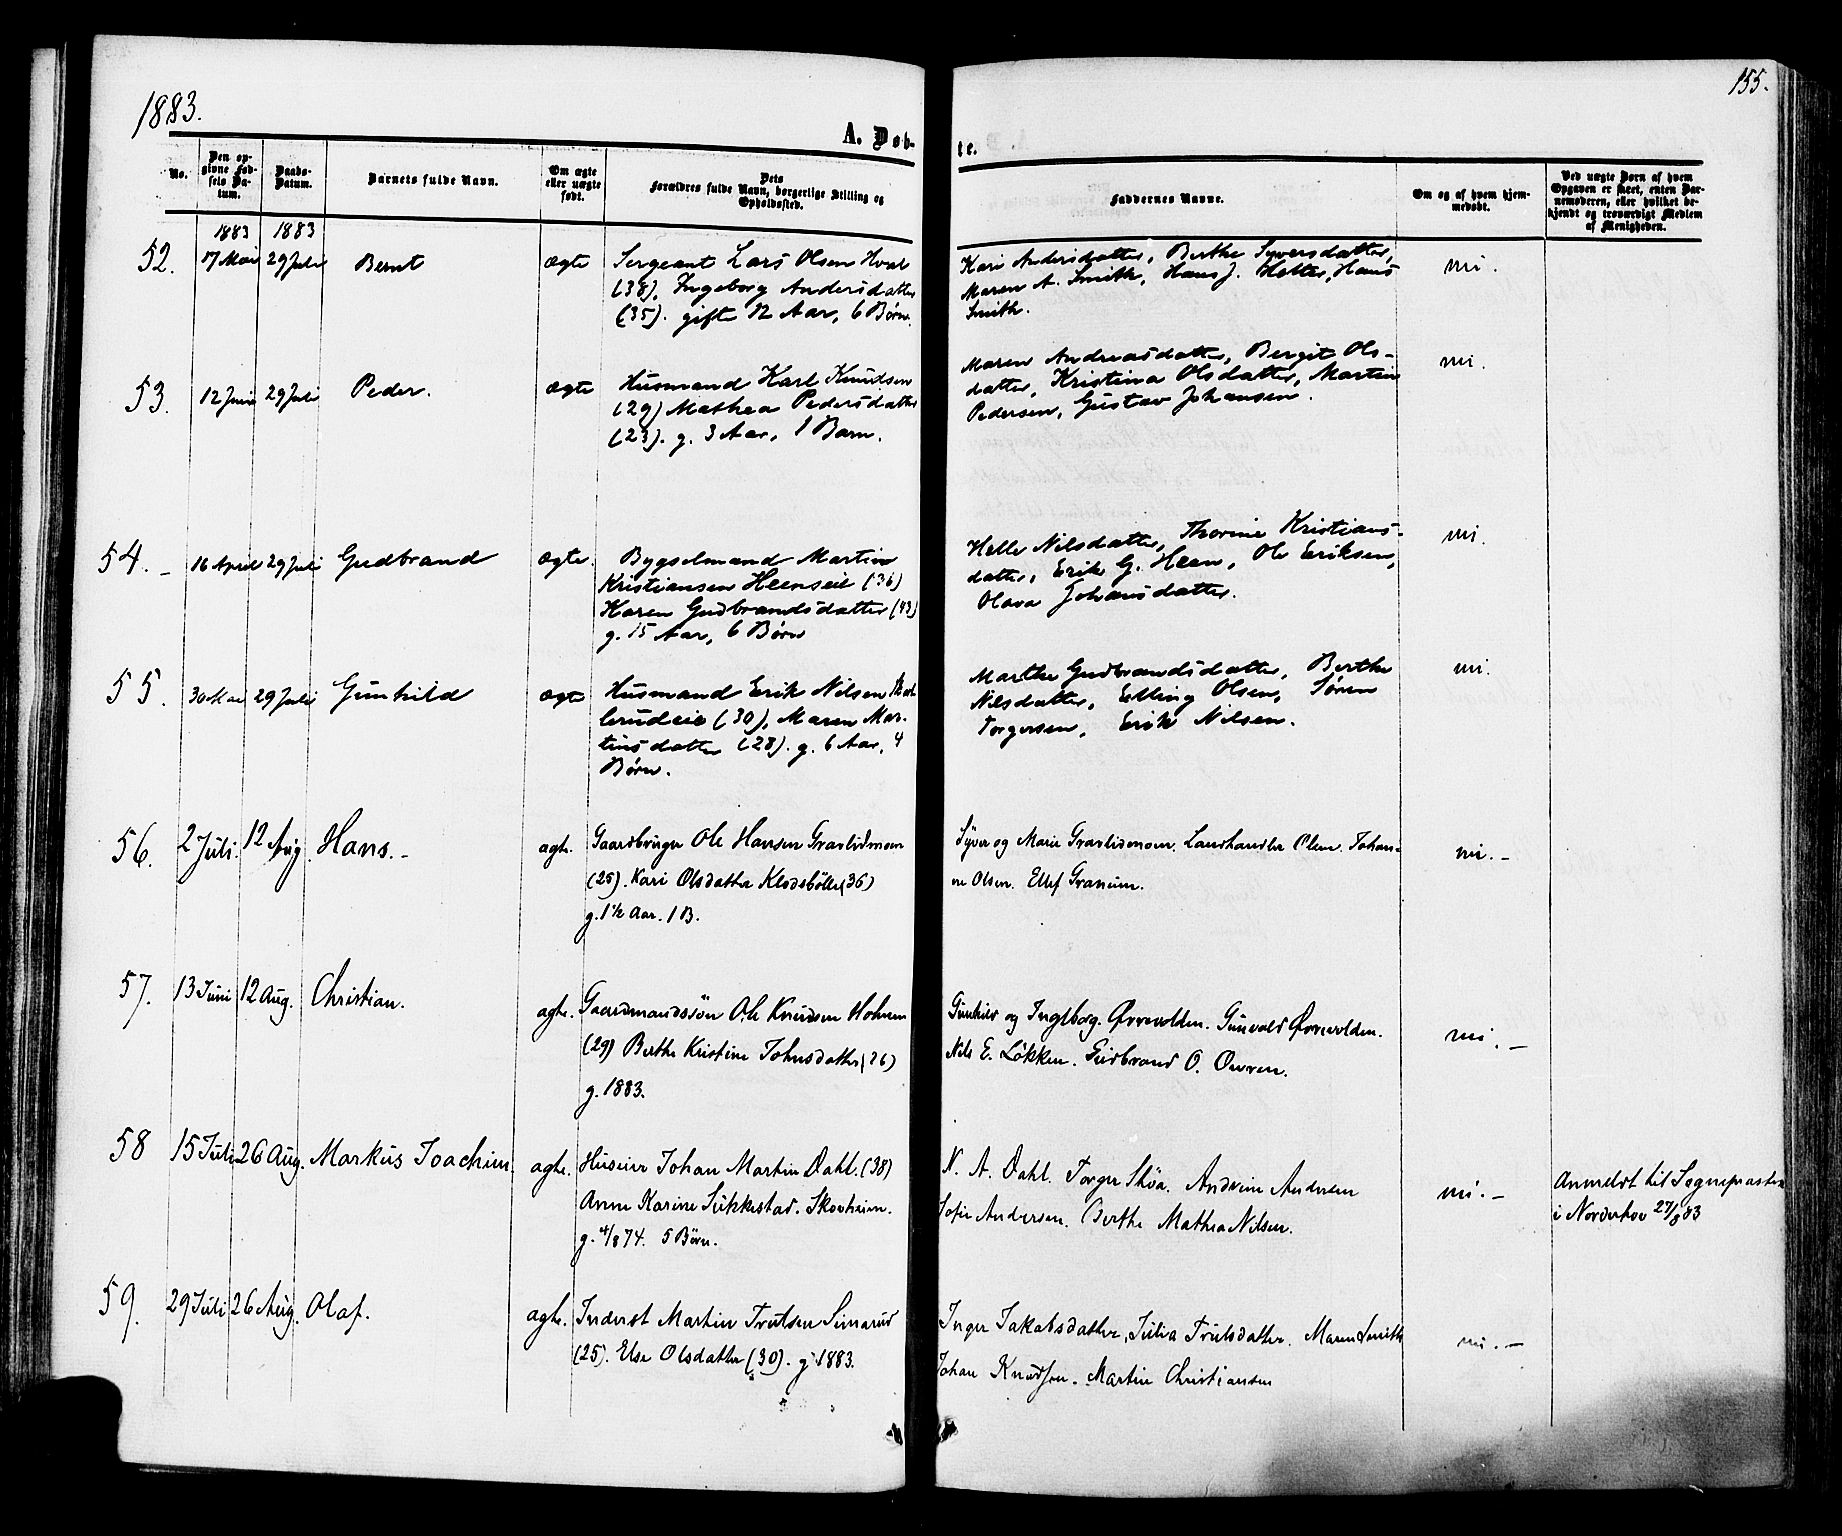 1883.
155.
A. Døb-
te.
No.
Den op-
givne Fød-
sels Da-
tum.
Daabs-
Datum.
Barnets fulde Navn.
Om ægte
eller uægte
født.
Dets
Forældres fulde Navn, borgerlige Stilling og
Opholdssted.
Faddernes Navne.
Om og af hvem hjem-
medøbt.
Ved uægte Børn af hvem
Opgaven er skeet, enten Bar-
nemoderen, eller hvilket be-
kjendt og troværdigt Medlem
af Menigheden.
1883 1883
52. 17 Mai 29 Juli Bernt ægte
Sergeant Lars Olsen Hval
(38), Ingeborg Andersdatter
(35). gifte 12 Aar, 6 Børn.
Kari Andersdatter, Berthe Syversdatter,
Maren A. Smith, Hans J. Hatter, Hans
Smith.
ni.
53. 12 Juni 29 Juli Peder. ægte
Husmand Karl Knudsen
(29) Mathea Pedersdatter
(23). g. 3 Aar, 1 Barn.
Maren Andreasdatter, Bergit Ols-
datter, Kristina Olsdatter, Martin
Pedersen, Gustav Johansen.
ni.
54. - 16 April 29 Juli Gudbrand ægte.
Bygselmand Martin
Kristiansen Heenseie (36)
Karen Gudbrandsdatter (43)
g. 15 Aar, 6 Børn
Helle Nilsdatter, Thorine Kristians-
datter, Erik G. Heen, Ole Eriksen,
Olava Johansdatter.
ni.
55. 30 Mai 29 Juli Gunhild ægte
Husmand Erik Nilsen
(30), Maren Mar-
tinsdatter (28). g. 6 Aar, 4
Børn.
Marthe Gudbrandsdatter, Berthe
Nilsdatter, Elling Olsen, Søren
Torgersen, Erik Nilsen.
ni.
56. 2 Juli. 12 Aug. Hans. - ægte.
Gaardbruger Ole Hansen Gravlidmoen
(25). Kari Olsdatter Klodsbølle (36)
g. 1½ Aar. 1 B.
Syver og Marie Gravlidmoen. Landhandler Olsen. Johan-
ne Olsen. Ellef Granum.
ni. -
57. 13 Juni 12 Aug. Christian. ægte.
Gaardmandssøn Ole Knudsen Holmen
(29) Berthe Kristine Johnsdatter (26)
g. 1883.
Gunhild og Ingeborg Ørrevolden. Gunvald Ørrevolden.
Nils E. Løkken. Gudbrand O. Owren.
ni. -
58 15 Juli 26 Aug. Markus Joachim. ægte.
Huseier Johan Martin Dahl. (38)
Anne Karine Sukkestad. Skovheim.
g. 4/8 74. 5 Børn.
N. A. Dahl. Torger Skøa. Andrine Andersen
Sofie Andersen. Berthe Mathea Nilsen.
ni. -
Anmeldt til Sognepræsten
i Norderhov 27/8 83
59. 29 Juli 26 Aug. Olaf. ægte.
Inderst Martin Trulsen Simarud
(25). Else Olsdatter (30). g. 1883.
Inger Jakobsdatter, Julia Trulsdatter. Maren Smith
Johan Knudsen. Martin Christiansen
ni. -